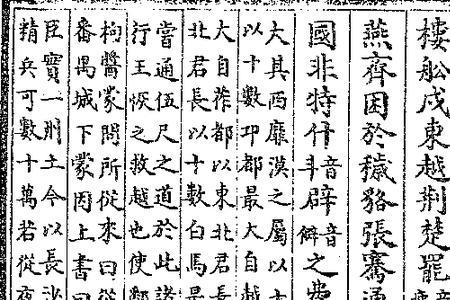 樓舩戍東越荊楚罷
燕齊困於穢貉張騫通
國非特什音斗辟音僻之費
大其西靡漠之屬以
以十數邛都最大自越
大自莋都以東北君長
北君長以十數白馬是
當通伍尺之道於此諸
行王恢之救越也使鄱
枸醬蒙問所從來曰從
番禺城下蒙因上書曰
臣實一州主今以長沙
精兵可數十萬若從夜